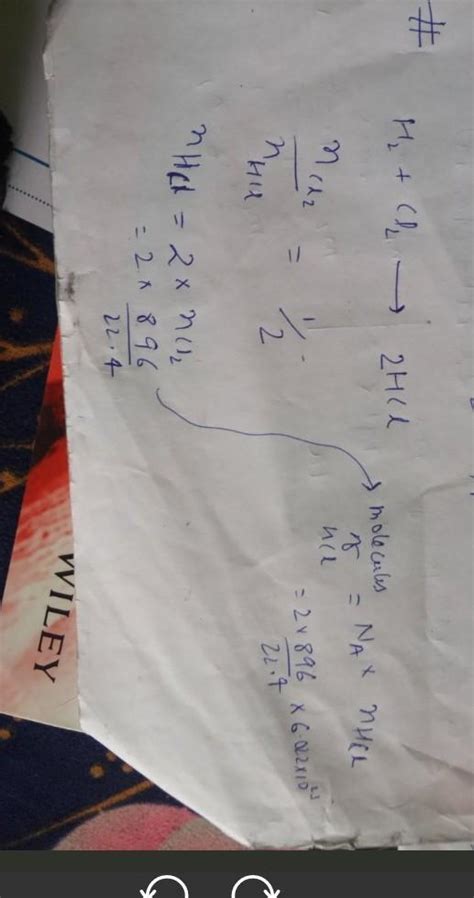 #
H₂ + Cl₂ ⟶ 2HCl
n Cl₂ / n HCl = 1/2
n HCl = 2 × n Cl₂
= 2 × 896 / 22.4
molecules of HCl = N_A × n HCl
= 2 × 896 / 22.4 × 6.022×10²³
WILEY